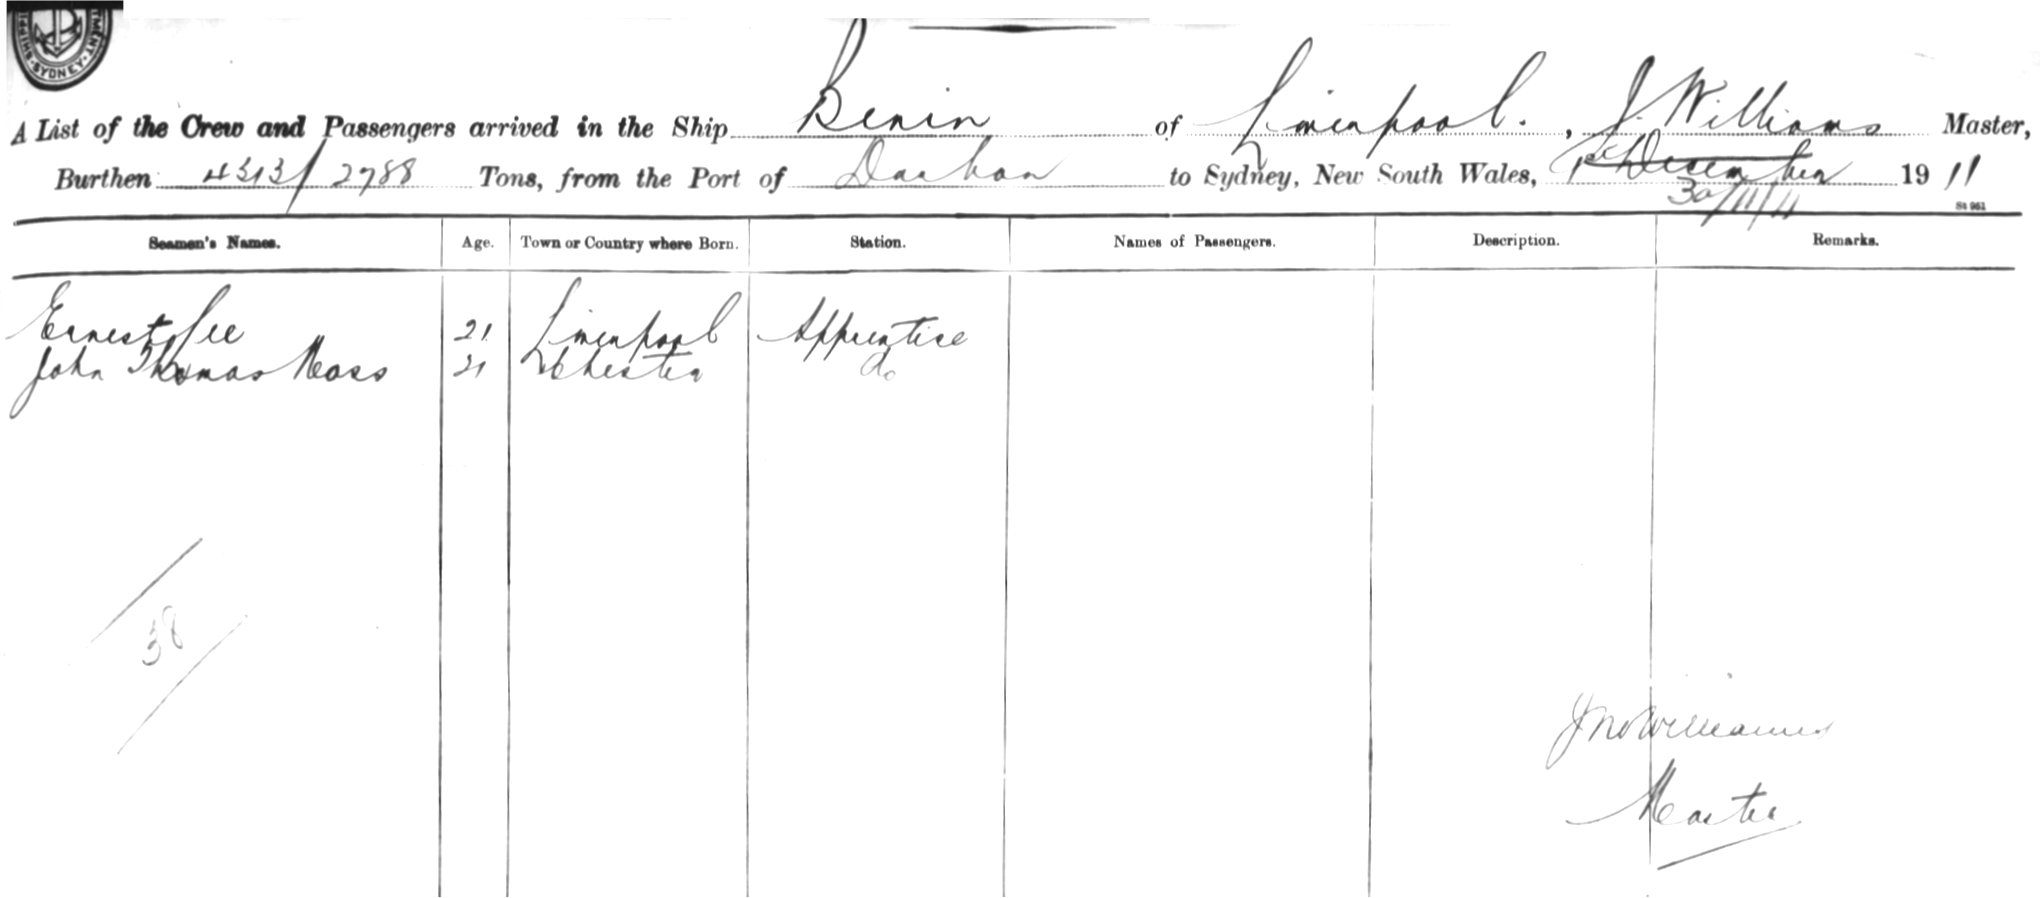 SHIPPING
DEPARTMENT
SYDNEY
A List of the Crew and Passengers arrived in the Ship Benin of Liverpool. , J. Williams Master,
Burthen 4313/2788 Tons, from the Port of Durban to Sydney, New South Wales, 1st December 1911
30/11/11
St 961
Seamen's Names. Age. Town or Country where Born. Station. Names of Passengers. Description. Remarks.
Ernest Lee 21 Liverpool Apprentice
John Thomas Moss 21 Chester do
38
Jno Williams
Master